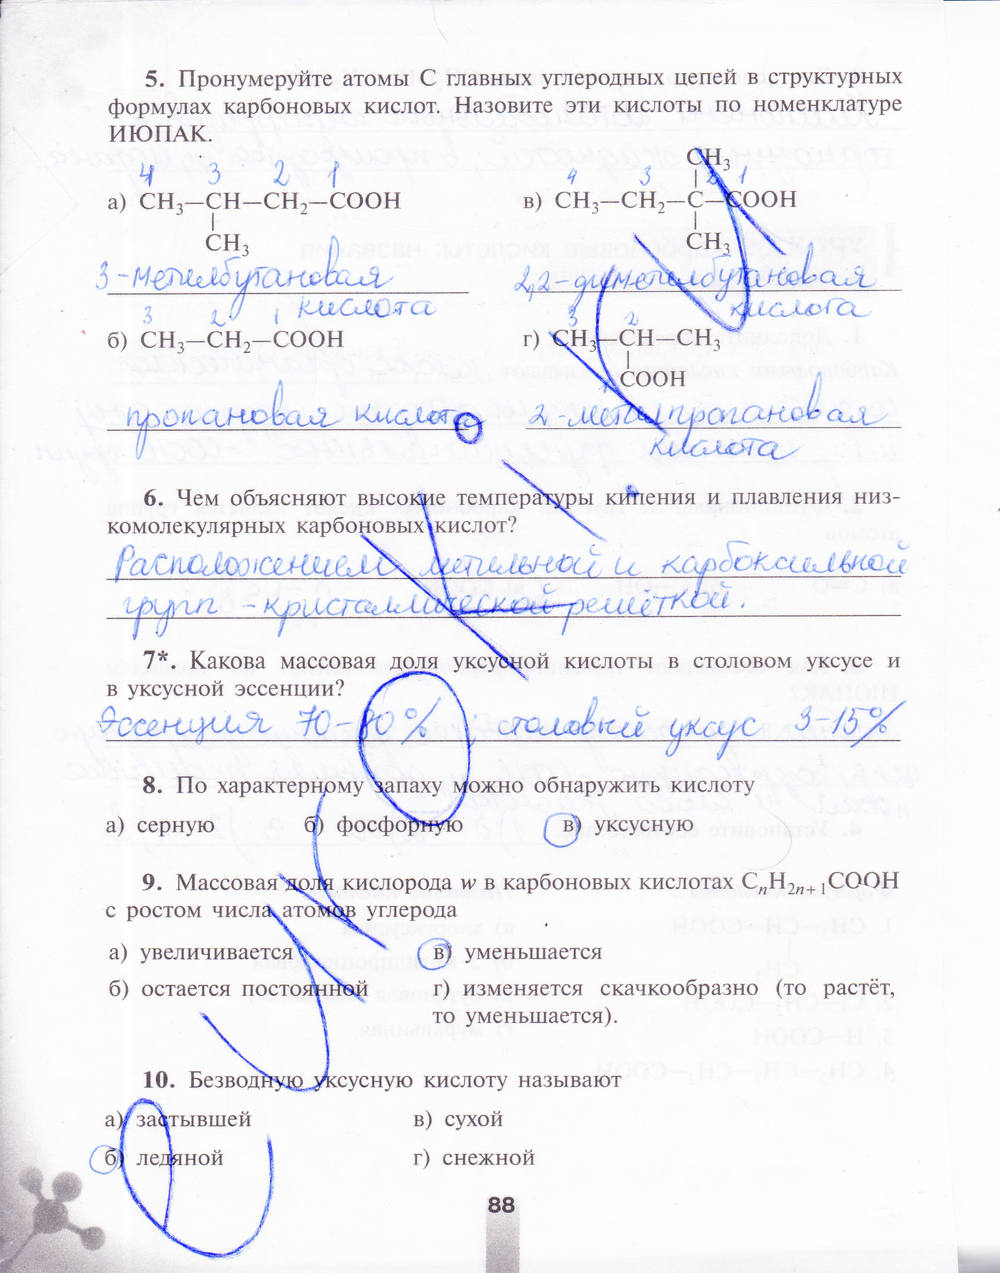 5. Пронумеруйте атомы С главных углеродных цепей в структурных
формулах карбоновых кислот. Назовите эти кислоты по номенклатуре
ИЮПАК.
4 3 2 1
а) CH₃—CH—CH₂—COOH
|
CH₃
3-метилбутановая
кислота
CH₃
4 3 | 2 1
в) CH₃—CH₂—C—COOH
|
CH₃
2,2-диметилбутановая
кислота
3 2 1
б) CH₃—CH₂—COOH
пропановая кислота
3 2
г) CH₃—CH—CH₃
|
1 COOH
2-метилпропановая
кислота
6. Чем объясняют высокие температуры кипения и плавления низ-
комолекулярных карбоновых кислот?
Расположением метильной и карбоксильной
групп - кристаллической решёткой.
7*. Какова массовая доля уксусной кислоты в столовом уксусе и
в уксусной эссенции?
Эссенция 70-80% столовый уксус 3-15%
8. По характерному запаху можно обнаружить кислоту
а) серную б) фосфорную в) уксусную
9. Массовая доля кислорода w в карбоновых кислотах CₙH₂ₙ₊₁COOH
с ростом числа атомов углерода
а) увеличивается в) уменьшается
б) остается постоянной г) изменяется скачкообразно (то растёт,
то уменьшается).
10. Безводную уксусную кислоту называют
а) застывшей в) сухой
б) ледяной г) снежной
88